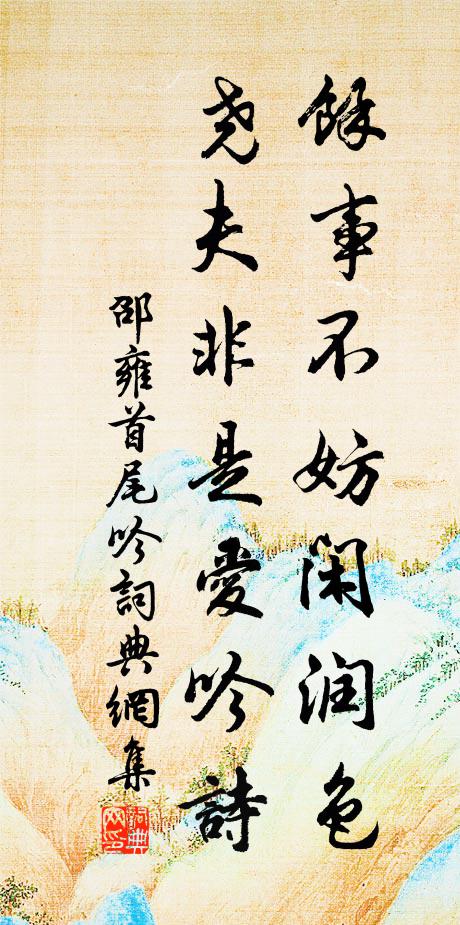 餘事不妨閑润色
堯夫非是愛吟詩
邵雍首尾吟詞典網集
詞典网印